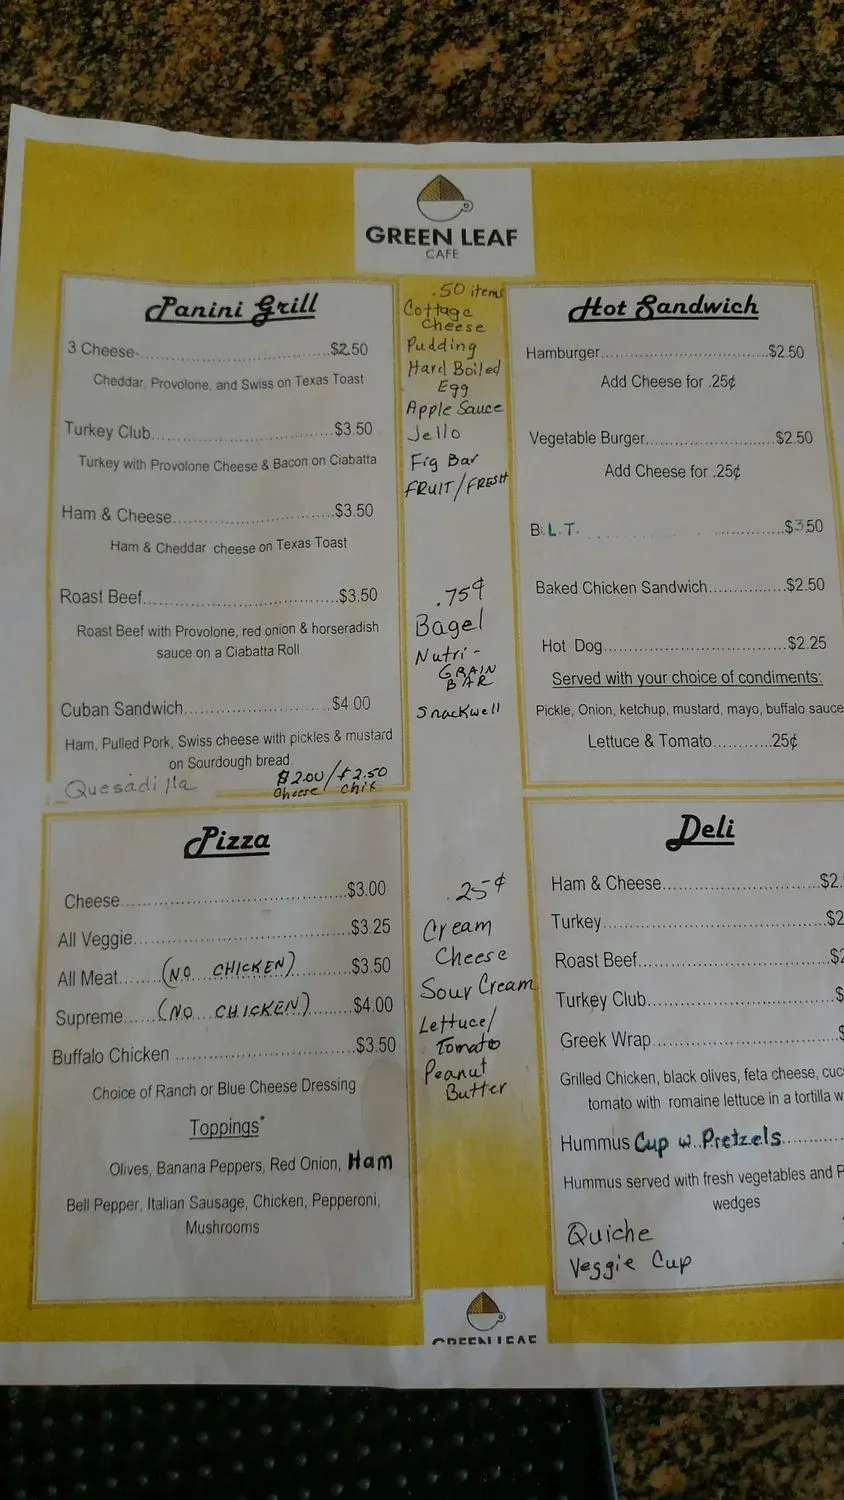 GREEN LEAF
CAFE
Panini Grill
3 Cheese-..............................$2.50
Cheddar, Provolone, and Swiss on Texas Toast
Turkey Club..............................$3.50
Turkey with Provolone Cheese & Bacon on Ciabatta
Ham & Cheese..............................$3.50
Ham & Cheddar cheese on Texas Toast
Roast Beef..............................$3.50
Roast Beef with Provolone, red onion & horseradish
sauce on a Ciabatta Roll
Cuban Sandwich..............................$4.00
Ham, Pulled Pork, Swiss cheese with pickles & mustard
on Sourdough bread.
Quesadilla $2.00/$2.50
Cheese chix
.50 items
Cottage
Cheese
Pudding
Hard Boiled
Egg
Apple Sauce
Jello
Fig Bar
FRUIT/FRESH
.75¢
Bagel
Nutri-
GRAIN
BAR
Snackwell
.25¢
Cream
Cheese
Sour Cream
Lettuce/
Tomato
Peanut
Butter
Hot Sandwich
Hamburger..............................$2.50
Add Cheese for .25¢
Vegetable Burger..............................$2.50
Add Cheese for .25¢
B.L.T...............................$3.50
Baked Chicken Sandwich...............$2.50
Hot Dog..............................$2.25
Served with your choice of condiments:
Pickle, Onion, ketchup, mustard, mayo, buffalo sauce
Lettuce & Tomato............25¢
Pizza
Cheese..............................$3.00
All Veggie..............................$3.25
All Meat.......(NO CHICKEN)..........$3.50
Supreme......(NO CHICKEN)........$4.00
Buffalo Chicken..............................$3.50
Choice of Ranch or Blue Cheese Dressing
Toppings*
Olives, Banana Peppers, Red Onion, Ham
Bell Pepper, Italian Sausage, Chicken, Pepperoni,
Mushrooms
Deli
Ham & Cheese..............................$2.
Turkey..............................$2
Roast Beef..............................$2
Turkey Club..............................$
Greek Wrap..............................$
Grilled Chicken, black olives, feta cheese, cuc
tomato with romaine lettuce in a tortilla w
Hummus Cup w. Pretzels............
Hummus served with fresh vegetables and P
wedges
Quiche
Veggie Cup
GREEN LEAF